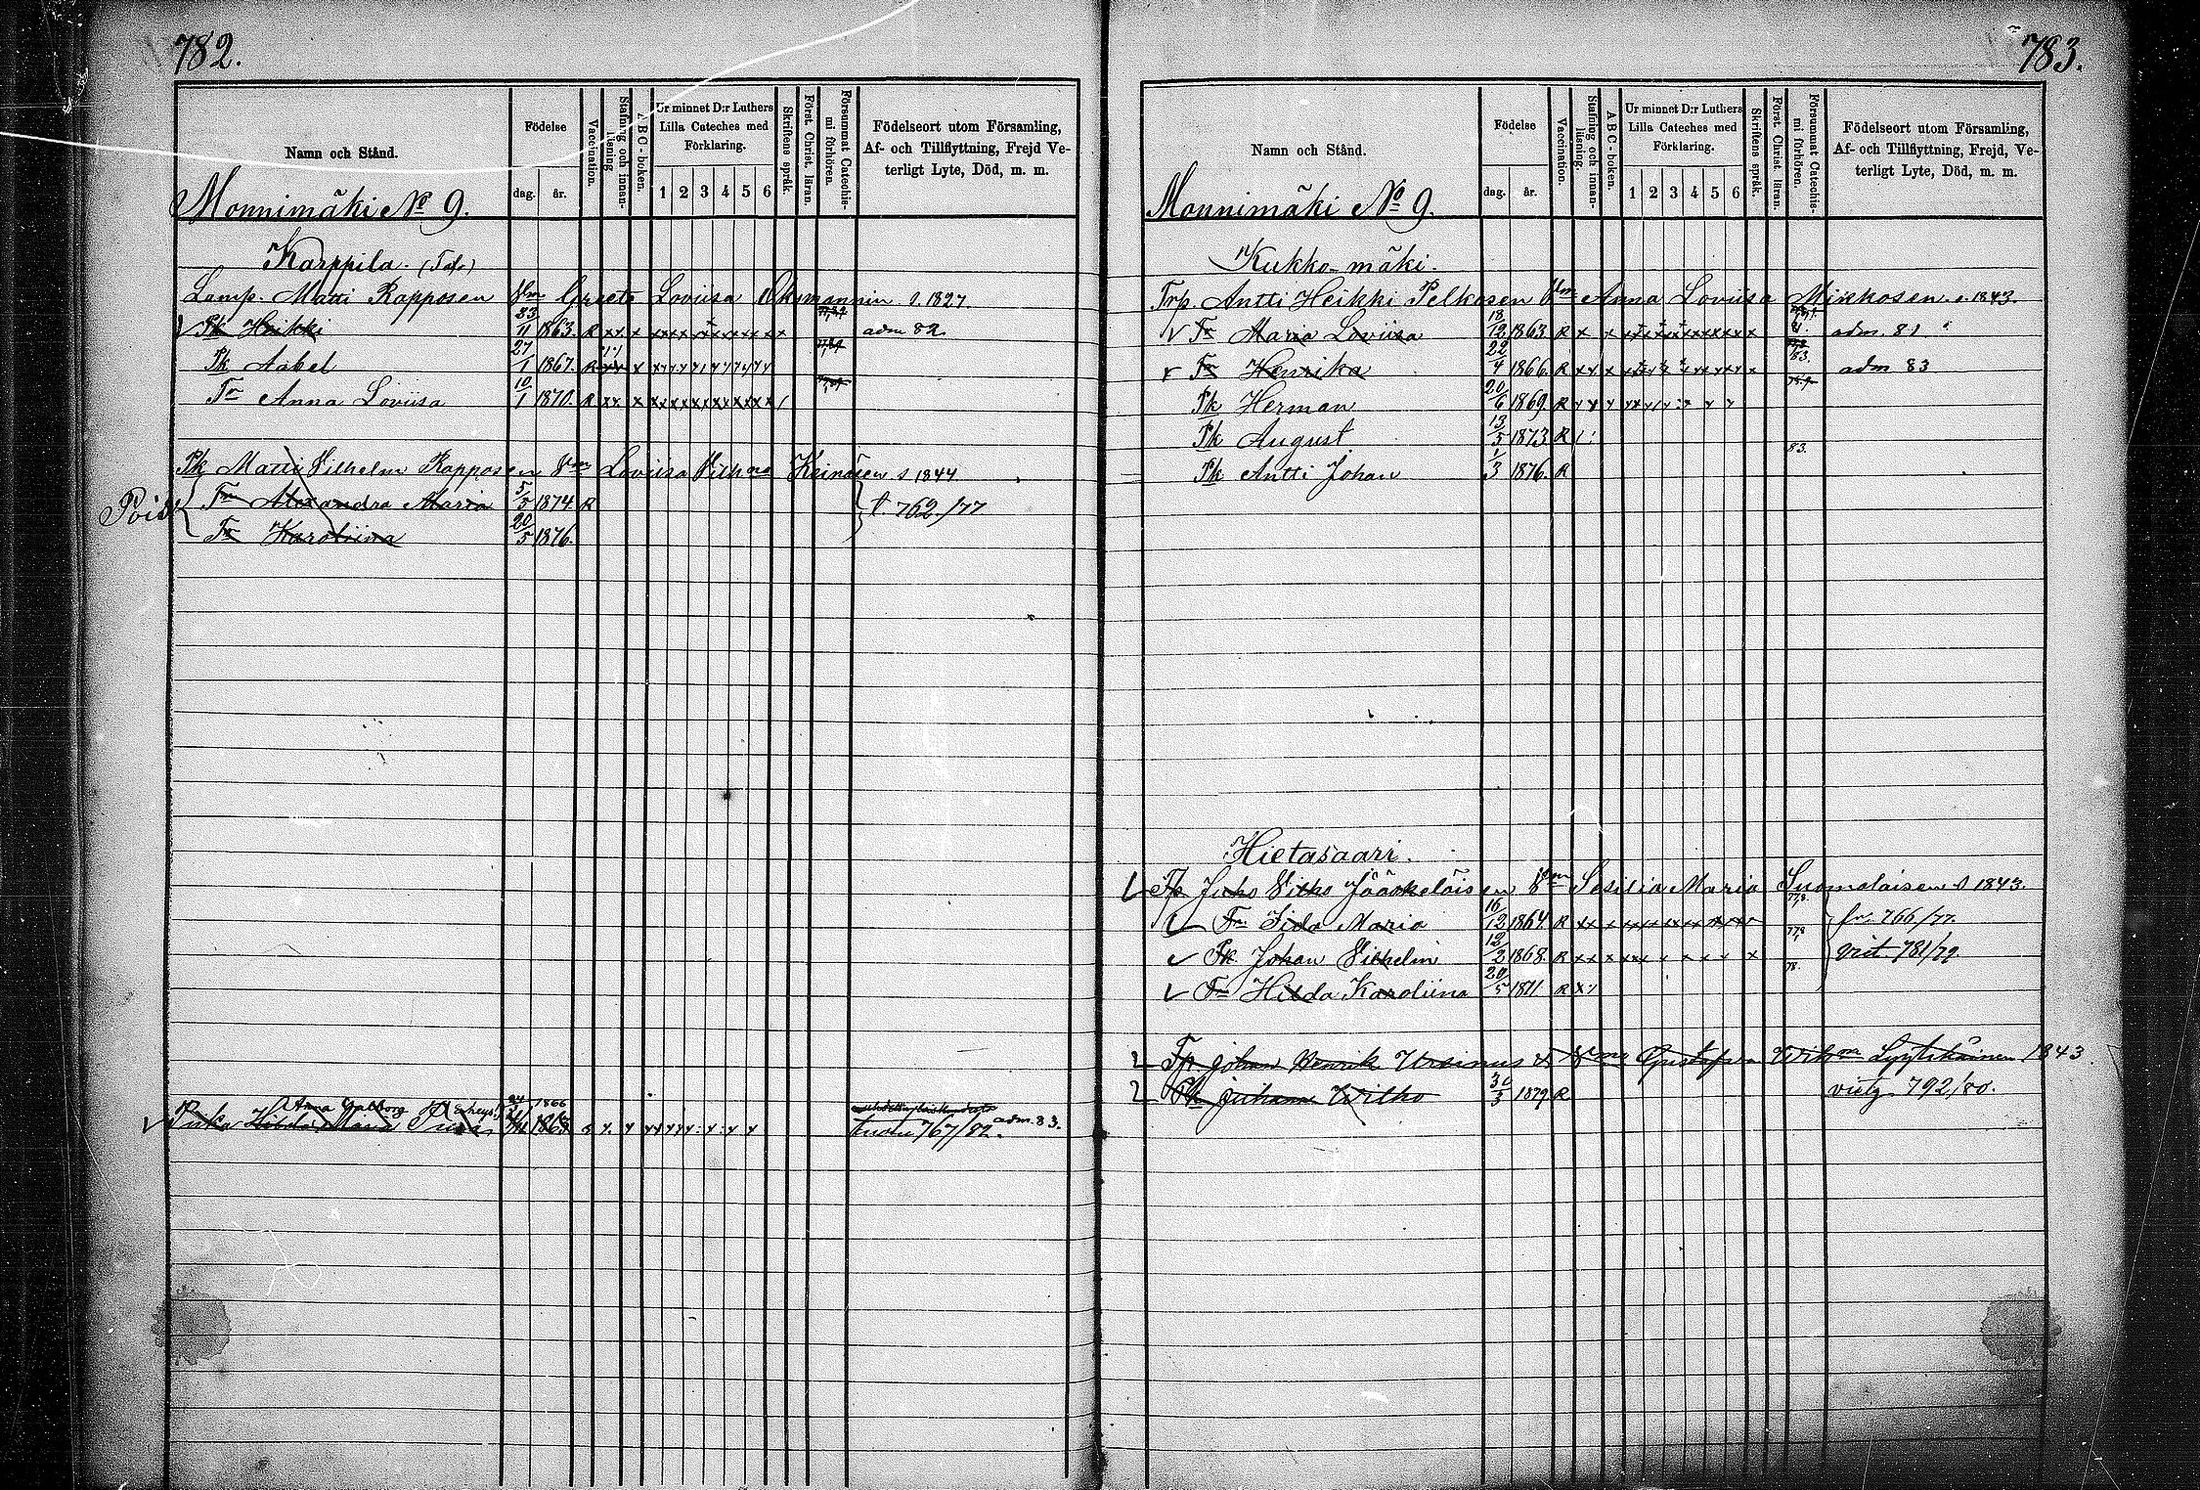 782.
Namn och Stånd.
Födelse
dag.
år.
Vaccination.
Stafning och innan-läsning
ABC-boken.
Ur minnet D:r Luthers
Lilla Cateches med
Förklaring.
1 2 3 4 5 6
Skriftens språk.
Först. Christ. läran.
Försummat Catechis-mi förhören.
Födelseort utom Församling,
Af- och Tillflyttning, Frejd Ve-
terligt Lyte, Död, m. m.
Monnimäki No 9.
Karppila.
Lamp. Matti Rapposen Vm Greeta Loviisa Oksmannin s. 1827
Pk Heikki 23/11 1863. R adm 82
Pk Aabel 27/1 1867. R
Tr Anna Loviisa 10/1 1870. R
Pk Matti Vilhelm Rapposen Vm Loviisa Vilh Keinäsen s 1844
Pois Tr Alexandra Maria 5/5 1874. R t. 762./77
Tr Karoliina 20/5 1876.
Anna Valborg 1866
Piika Hilda Maria 1868 tuotu 767/82. adm. 83.
783.
Namn och Stånd.
Födelse
dag.
år.
Vaccination.
Stafning och innan-läsning.
ABC-boken.
Ur minnet D:r Luthers
Lilla Cateches med
Förklaring.
1 2 3 4 5 6
Skriftens språk.
Först. Christ. läran.
Försummat Catechis-mi förhören.
Födelseort utom Församling,
Af- och Tillflyttning, Frejd, Ve-
terligt Lyte, Död, m. m.
Monnimäki No 9.
Kukko-mäki.
Trp. Antti Heikki Pelkosen Vm Anna Loviisa Mirekosen s. 1843.
Tr Maria Loviisa 18/12 1863 R 81. adm. 81
Tr Henrika 22/4 1866. R 83. adm 83
Pk Herman 20/6 1869. R
Pk August 13/5 1873 R 83.
Pk Antti Johan 1/3 1876. R
Hietasaari.
Tp Juho Vilho Jääskeläisen Vm Sesilia Maria Suomalaisen s 1843.
Tr Iida Maria 16/12 1864. R fr. 766/77.
Pk Johan Vilhelm 12/2 1868. R 781/79
Tr Hilda Karoliina 20/5 1871 R 78.
Tp Johan Henrik Ursinus Vm Gustafva Wilh Lyytikäinen 1843
Pk Juhana Wilho 30/3 1879 R vietg 792/80.